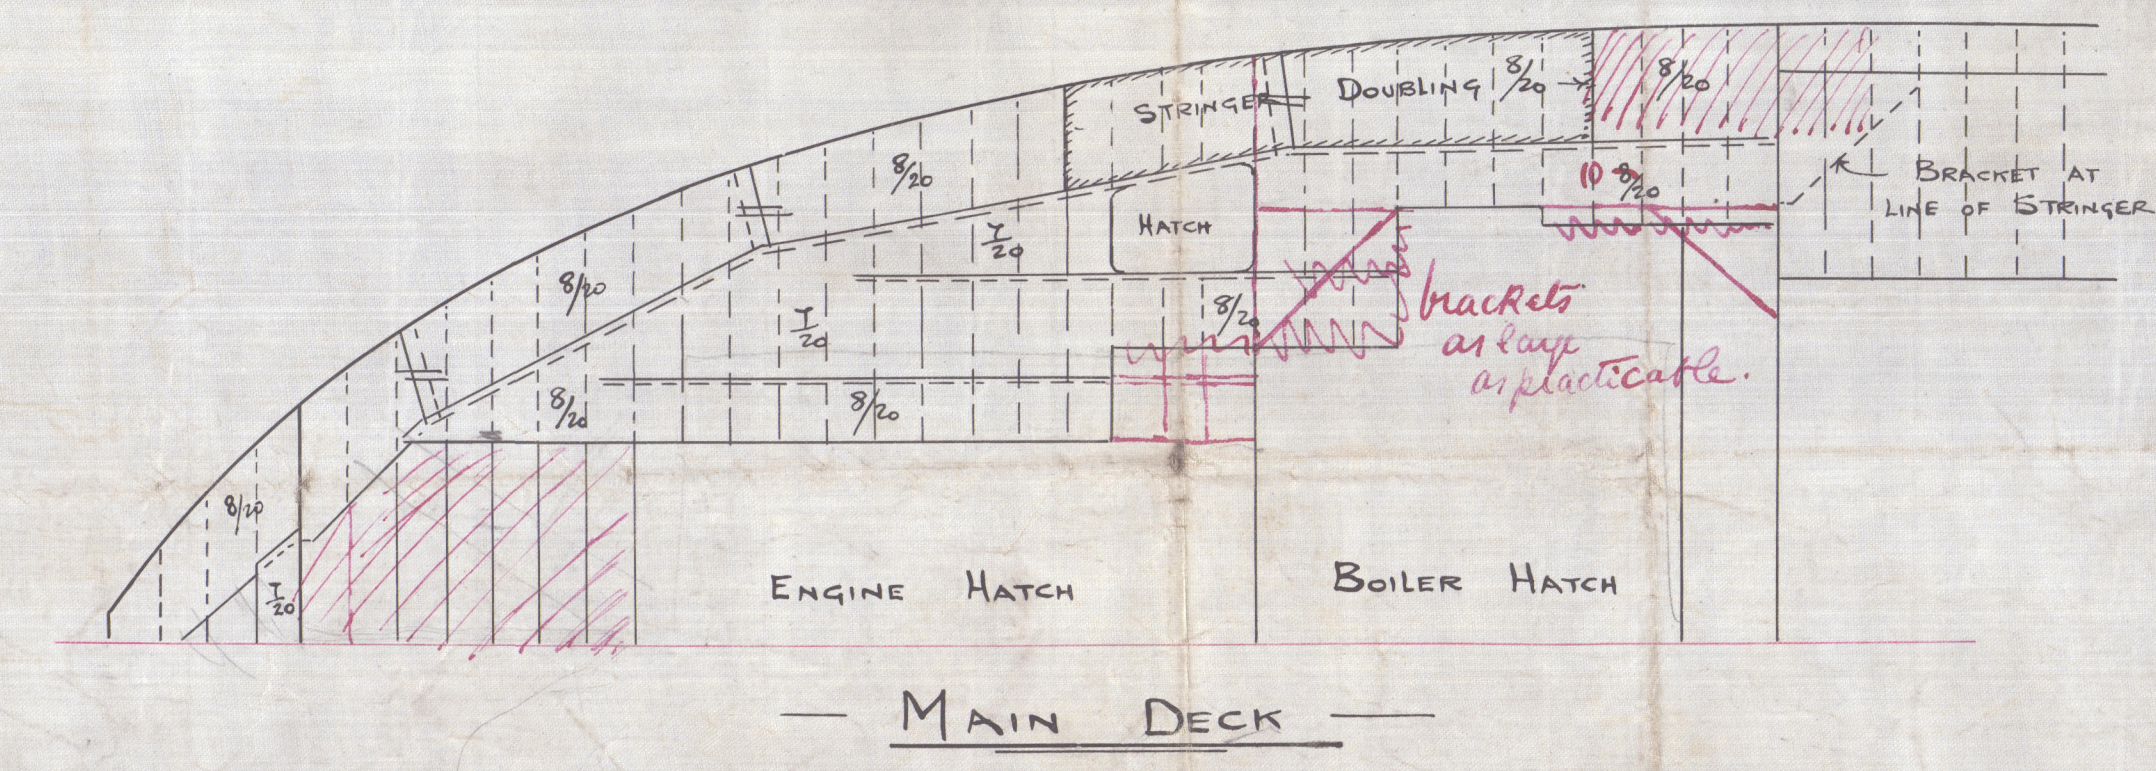 STRINGER
DOUBLING 8/20
8/20
8/20
10 8/20
BRACKET AT
LINE OF STRINGER
HATCH
7/20
8/20
8/20
7/20
brackets
as large
as practicable.
8/20
8/20
8/20
7/20
ENGINE HATCH
BOILER HATCH
— MAIN DECK —